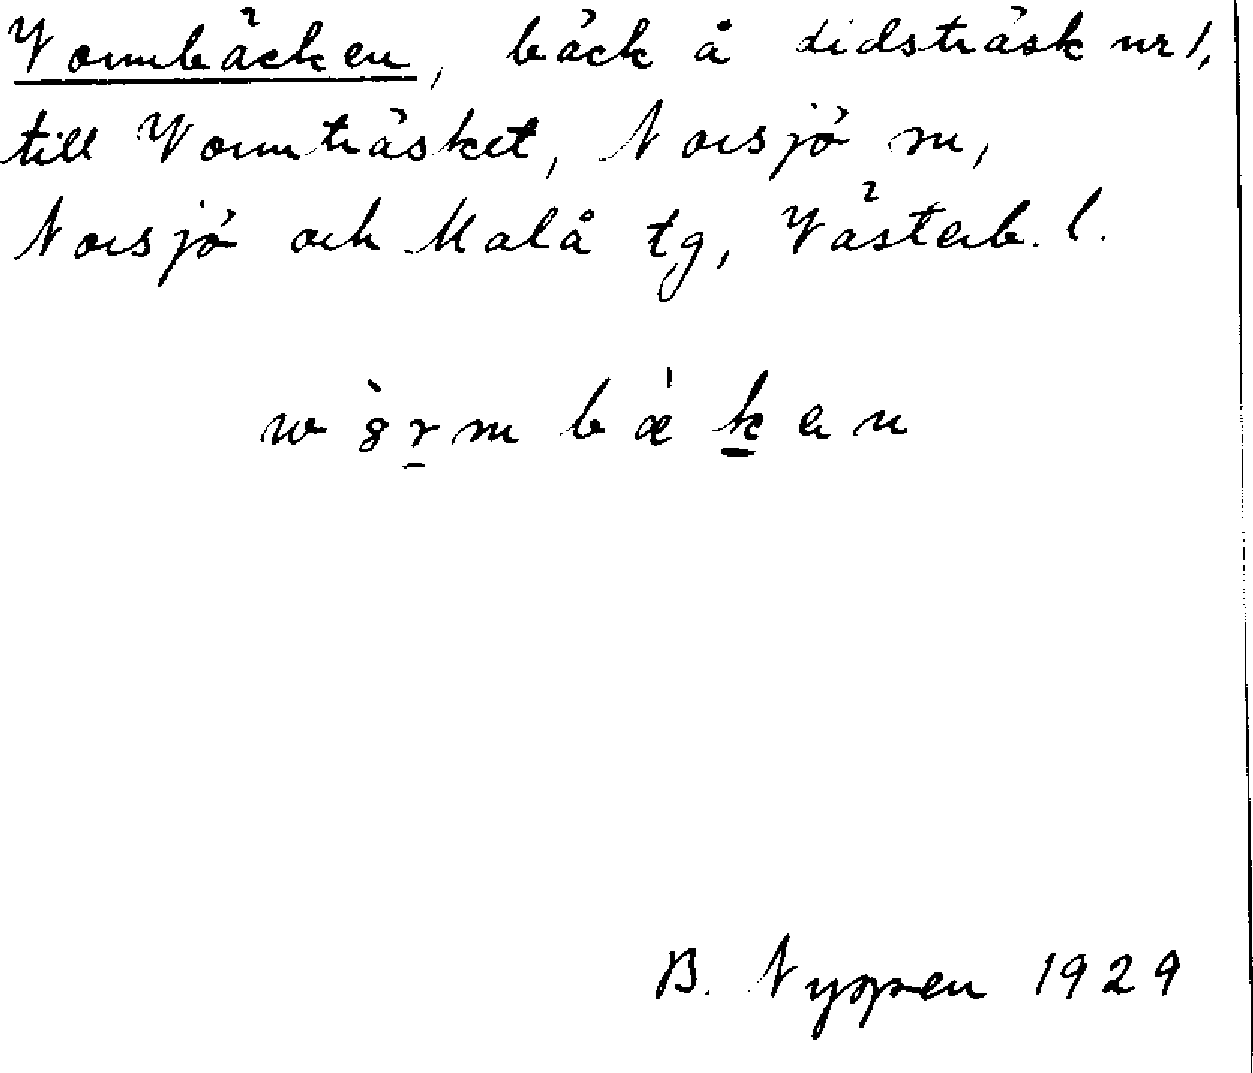 Vormbäcken, bäck å Lidsträsk nr 1,
till Vormträsket, Norsjö sn,
Norsjö och Malå tg, Västerb. l.
B. Nyppen 1929